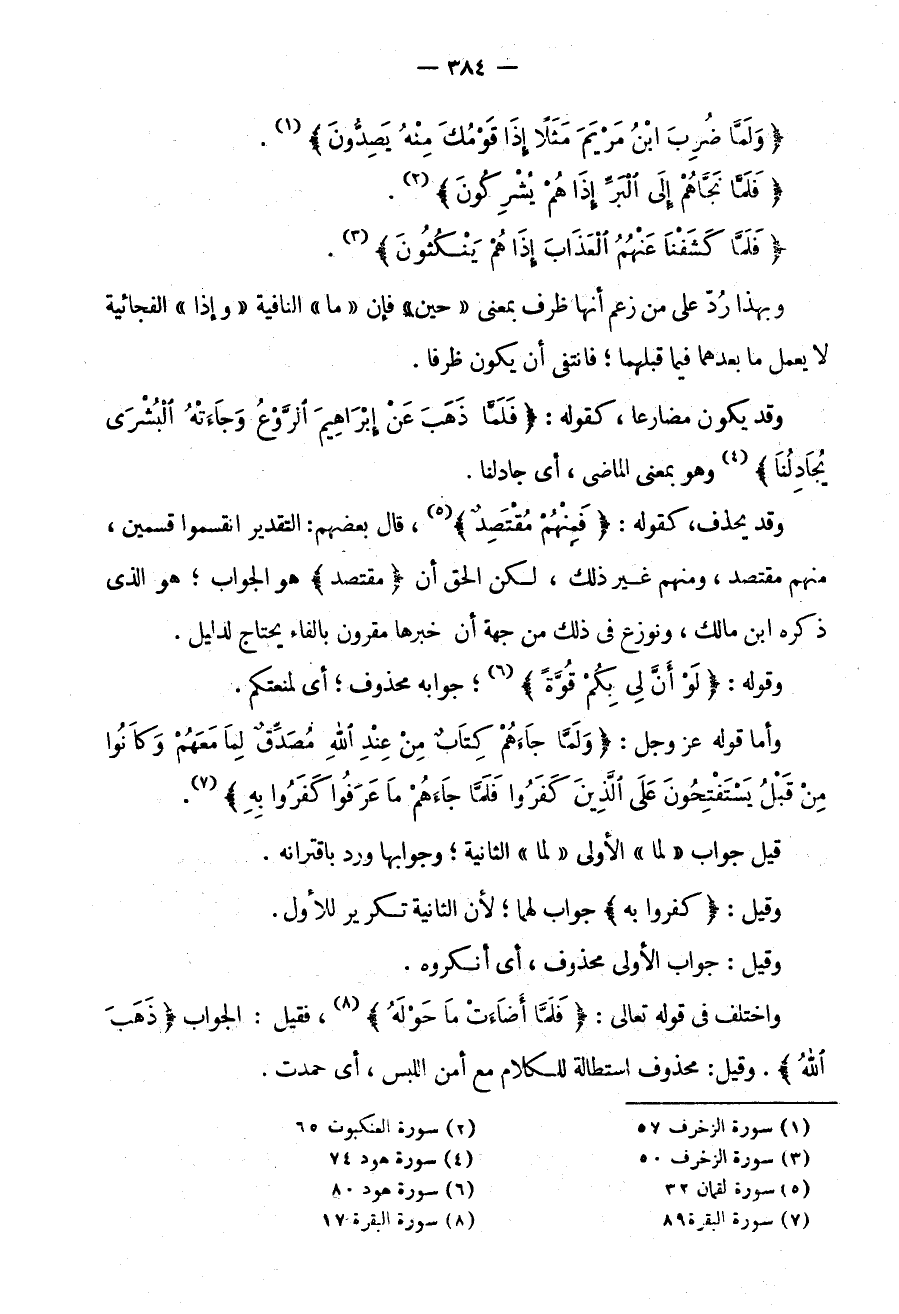 — ٣٨٤ —
﴿ وَلَمَّا ضُرِبَ ابْنُ مَرْيَمَ مَثَلًا إِذَا قَوْمُكَ مِنْهُ يَصِدُّونَ ﴾ (١) .
﴿ فَلَمَّا نَجَّاهُمْ إِلَى ٱلْبَرِّ إِذَا هُمْ يُشْرِكُونَ ﴾ (٢) .
﴿ فَلَمَّا كَشَفْنَا عَنْهُمُ ٱلْعَذَابَ إِذَا هُمْ يَنْكُثُونَ ﴾ (٣) .
وبهذا رُدّ على من زعم أنها ظرف بمعنى « حين» فإن « ما» النافية « وإذا » الفجائية
لا يعمل ما بعدهما فيما قبلهما ؛ فانتفى أن يكون ظرفا .
وقد يكون مضارعا ، كقوله : ﴿ فَلَمَّا ذَهَبَ عَنْ إِبْرَاهِيمَ ٱلرَّوْعُ وَجَاءَتْهُ ٱلْبُشْرَى
يُجَادِلُنَا ﴾ (٤) وهو بمعنى الماضى ، أى جادلنا .
وقد يحذف، كقوله : ﴿ فَمِنْهُمْ مُقْتَصِدٌ ﴾(٥) ، قال بعضهم: التقدير انقسموا قسمين ،
منهم مقتصد ، ومنهم غير ذلك ، لكن الحق أن ﴿ مقتصد ﴾ هو الجواب ؛ هو الذى
ذكره ابن مالك ، ونوزع فى ذلك من جهة أن خبرها مقرون بالفاء يحتاج لدليل .
وقوله : ﴿ لَوْ أَنَّ لِي بِكُمْ قُوَّةً ﴾ (٦) ؛ جوابه محذوف ؛ أى لمنعتكم .
وأما قوله عز وجل : ﴿ وَلَمَّا جَاءَهُمْ كِتَابٌ مِنْ عِنْدِ ٱللهِ مُصَدِّقٌ لِمَا مَعَهُمْ وَكَانُوا
مِنْ قَبْلُ يَسْتَفْتِحُونَ عَلَى ٱلَّذِينَ كَفَرُوا فَلَمَّا جَاءَهُمْ مَا عَرَفُوا كَفَرُوا بِهِ ﴾ (٧).
قيل جواب « لما » الأولى « لما » الثانية ؛ وجوابها ورد باقترانه .
وقيل : ﴿ كفروا به ﴾ جواب لهما ؛ لأن الثانية تكرير للأول.
وقيل : جواب الأولى محذوف ، أى أنكروه .
واختلف فى قوله تعالى : ﴿ فَلَمَّا أَضَاءَتْ مَا حَوْلَهُ ﴾ (٨) ، فقيل : الجواب ﴿ ذَهَبَ
ٱللهُ ﴾ . وقيل: محذوف استطالة للكلام مع أمن اللبس ، أى حمدت .
(١) سورة الزخرف ٥٧ (٢) سورة العنكبوت ٦٥
(٣) سورة الزخرف ٥٠ (٤) سورة هود ٧٤
(٥) سورة لقمان ٣٢ (٦) سورة هود ٨٠
(٧) سورة البقرة ٨٩ (٨) سورة البقرة ١٧